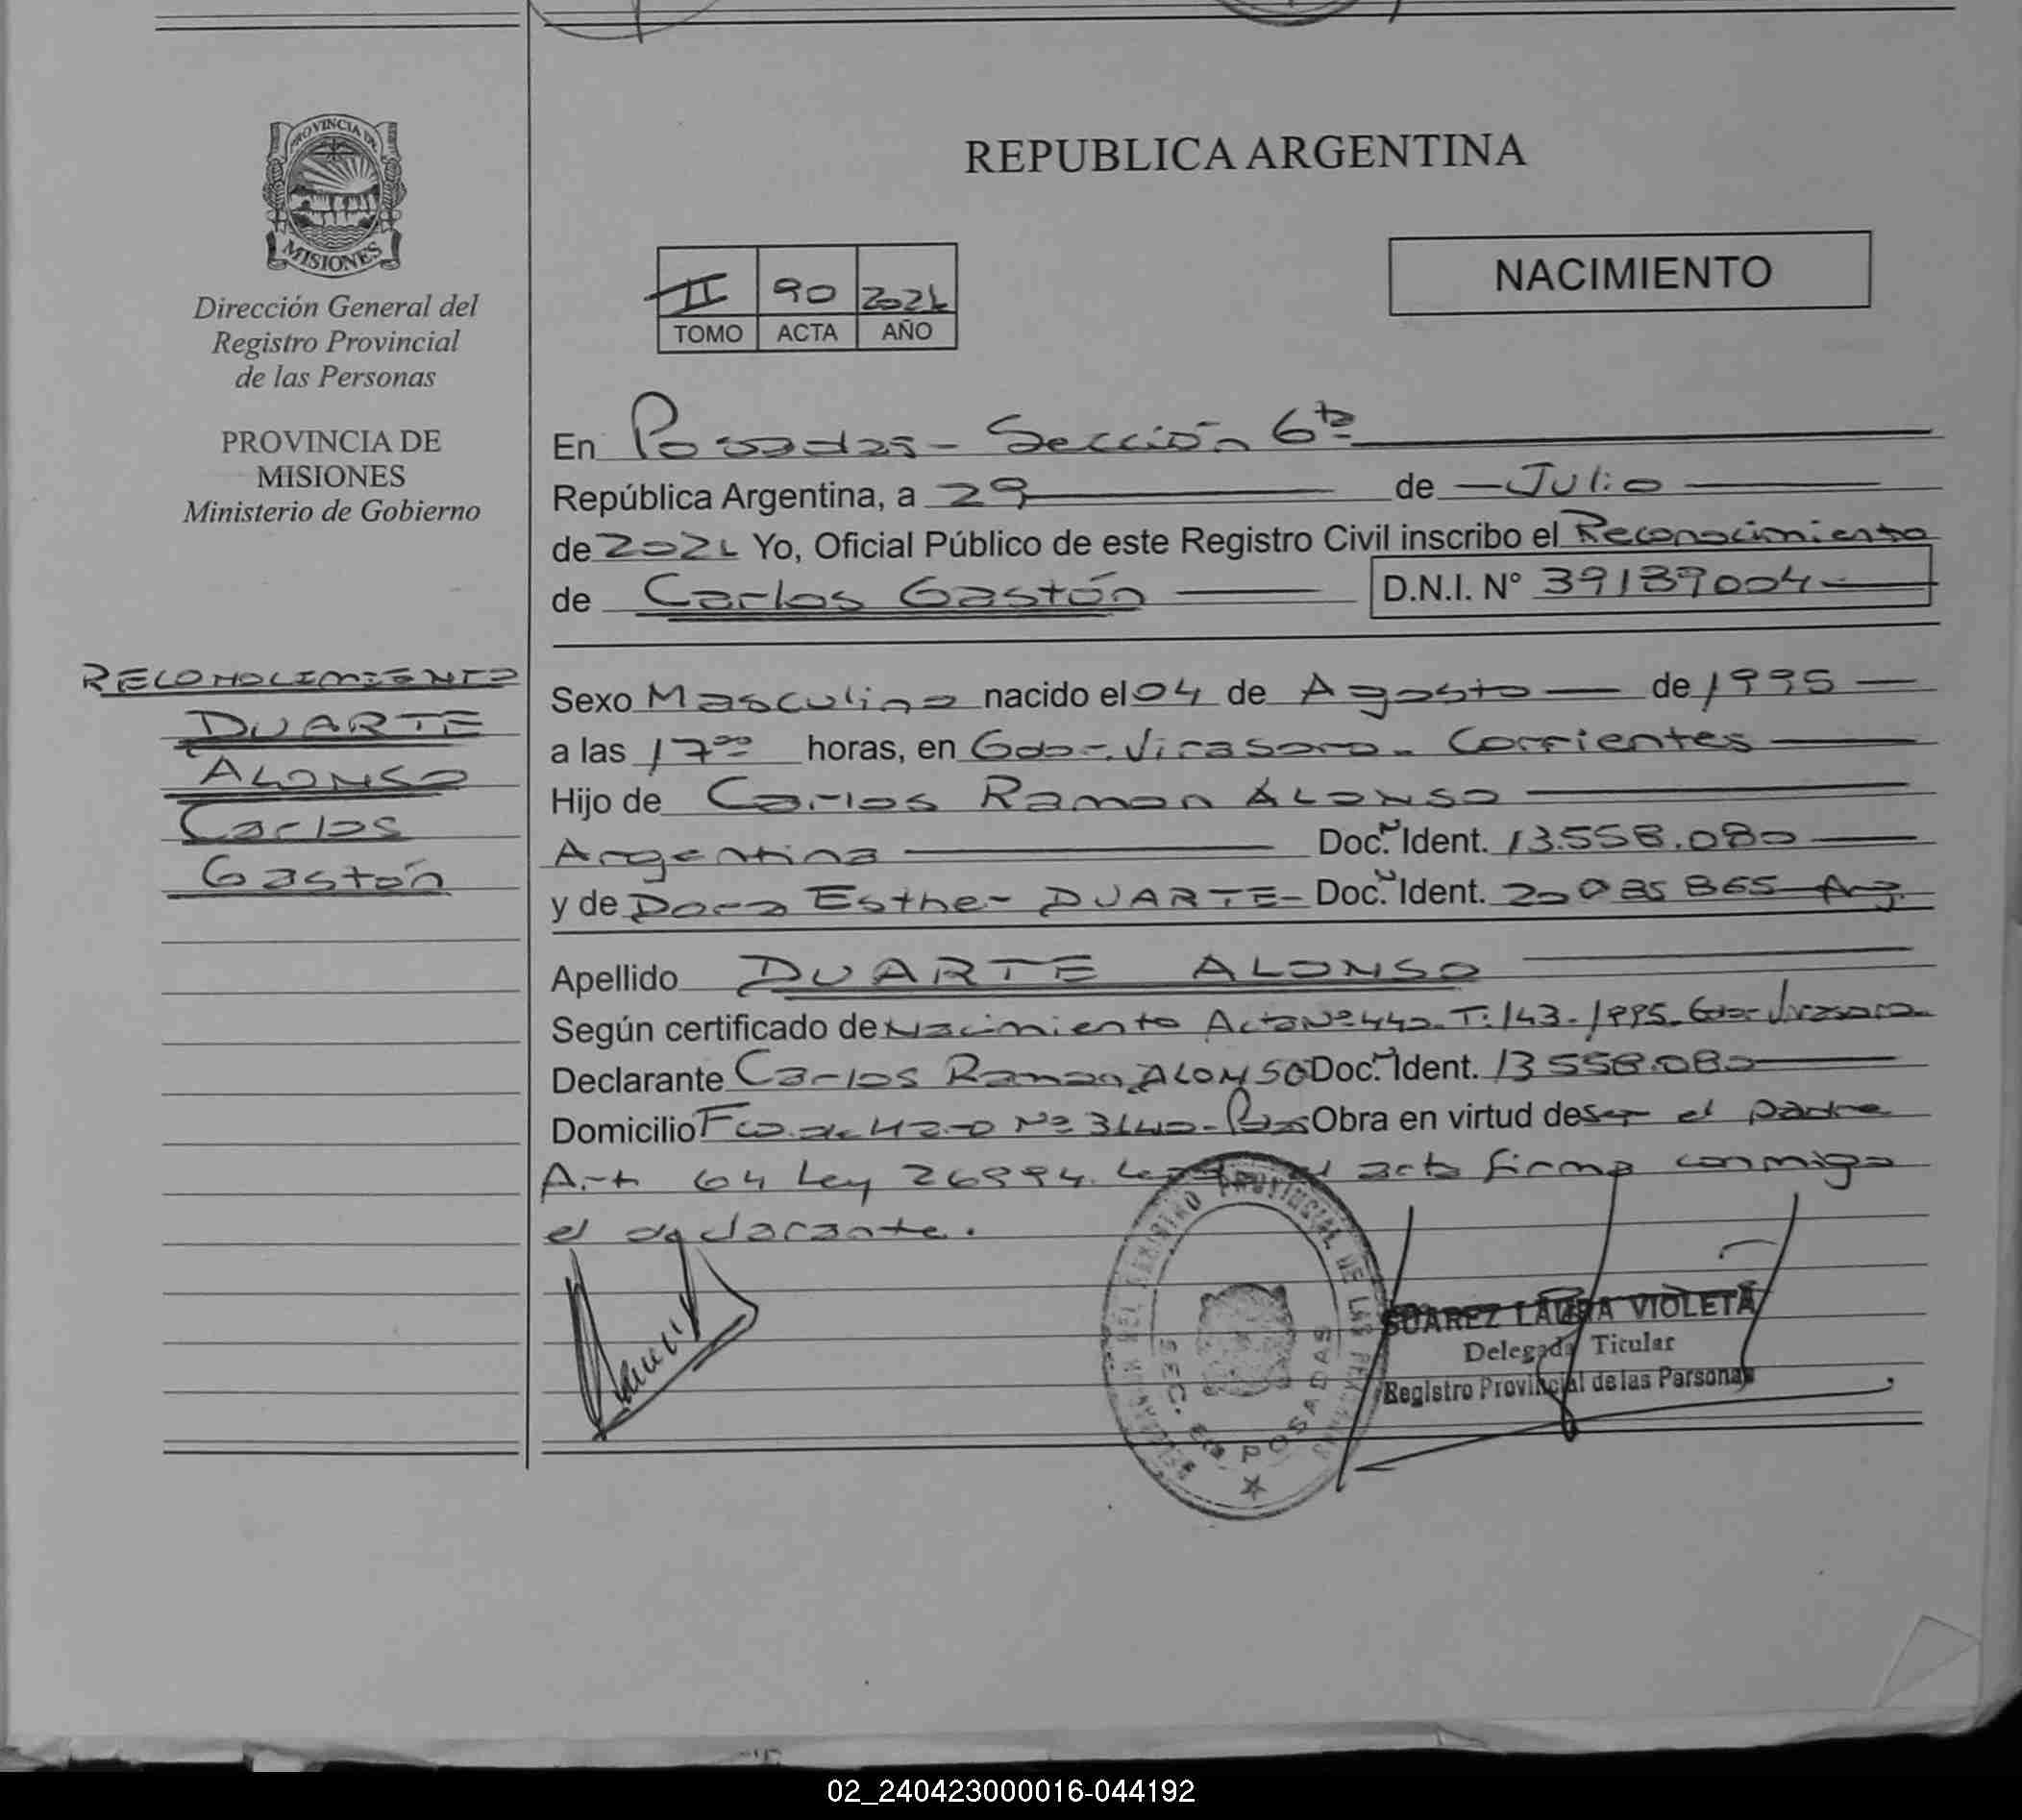 PROVINCIA DE
MISIONES
Dirección General del
Registro Provincial
de las Personas
PROVINCIA DE
MISIONES
Ministerio de Gobierno
RECONOCIMIENTO
DUARTE
ALONSO
Carlos
Gastón
REPUBLICA ARGENTINA
NACIMIENTO
II 90 2021
TOMO ACTA AÑO
En Posadas - Sección 6ta
República Argentina, a 29 de Julio
de 2021 Yo, Oficial Público de este Registro Civil inscribo el Reconocimiento
de Carlos Gastón D.N.I. N° 39189004
Sexo Masculino nacido el 04 de Agosto de 1995
a las 17:00 horas, en Gdor. Virasoro. Corrientes
Hijo de Carlos Ramon ALONSO
Argentina Doc. Ident. 13.558.080
y de Dora Esther DUARTE - Doc. Ident. 20085865 Arg
Apellido DUARTE ALONSO
Según certificado de Nacimiento Acta Nº 440. T: 143. 1995. Gdor Virasoro.
Declarante Carlos Ramon ALONSO Doc. Ident. 13558.080
Domicilio Fco. de Haro Nº Pos Obra en virtud de ser el padre
Art 64 Ley 26994. acta firma conmigo
el declarante.
DELEGACION DEL REGISTRO PROVINCIAL DE LAS PERSONAS
SEC. 6ta. POSADAS
SUAREZ LAURA VIOLETA
Delegada Titular
Registro Provincial de las Personas
02_240423000016-044192